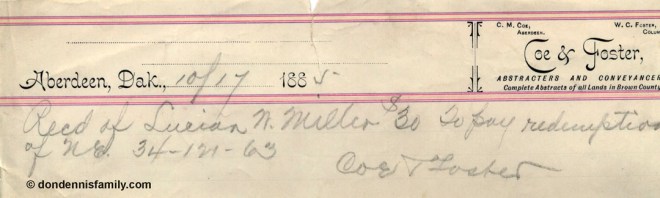 C. M. COE, ABERDEEN.
W. C. FOSTER, COLUM
Coe & Foster,
ABSTRACTERS AND CONVEYANCER
Complete Abstracts of all Lands in Brown County
Aberdeen, Dak., 10/17 1885
Recd of Lucian N. Miller $30 To pay redemption
of N.E. 34-121-63
Coe & Foster
© dondennisfamily.com